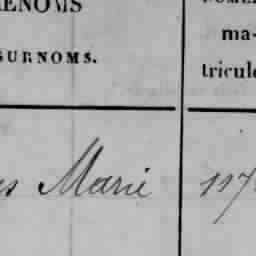 PRÉNOMS
SURNOMS.
ma-
tricule
es Marie 117